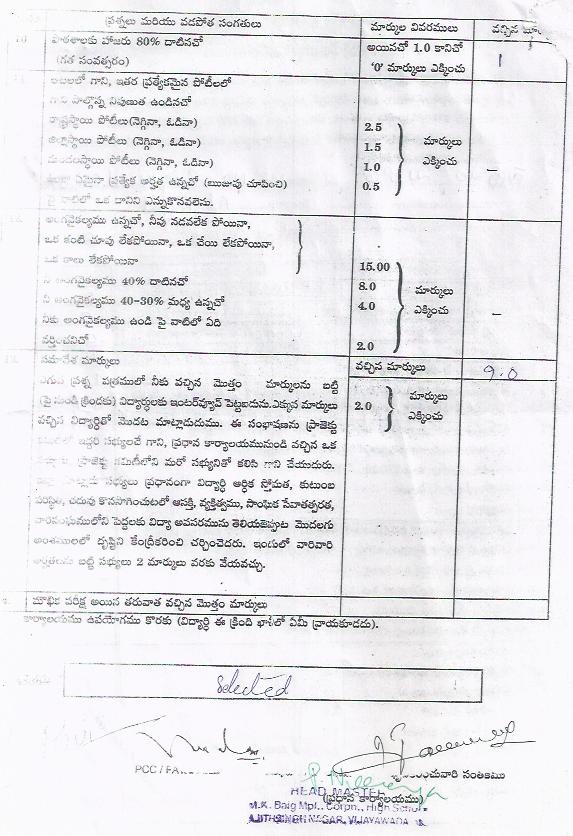 ప్రశ్నలు మరియు వడపోత సంగతులు మార్కుల వివరములు వచ్చిన
పాఠశాలకు హాజరు 80% దాటినచో అయినచో 1.0 కానిచో 1
(గత సంవత్సరం) ‘0’ మార్కులు ఎక్కించు
గాని, ఇతర ప్రత్యేకమైన పోటీలలో
నిపుణుత ఉండినచో
రాష్ట్రస్థాయి పోటీలు(నెగ్గినా, ఓడినా) 2.5
జిల్లాస్థాయి పోటీలు (నెగ్గినా, ఓడినా) 1.5 మార్కులు
పోటీలు (నెగ్గినా, ఓడినా) 1.0 ఎక్కించు –
ఏమైనా ప్రత్యేక అర్హత ఉన్నచో (ఋజువు చూపించి) 0.5
పై వాటిలో ఒక దానిని ఎన్నుకొనవలెను.
అంగవైకల్యము ఉన్నచో, నీవు నడవలేక పోయినా,
ఒక కంటి చూపు లేకపోయినా, ఒక చేయి లేకపోయినా,
ఒక కాలు లేకపోయినా 15.00
నీ అంగవైకల్యము 40% దాటినచో 8.0 మార్కులు
నీ అంగవైకల్యము 40-30% మధ్య ఉన్నచో 4.0 ఎక్కించు –
నీకు అంగవైకల్యము ఉండి పై వాటిలో ఏది
వర్తించనిచో 2.0
సమావేశ మార్కులు వచ్చిన మార్కులు 9.0
ప్రశ్న పత్రములో నీకు వచ్చిన మొత్తం మార్కులను బట్టి మార్కులు
(పై నుండి క్రిందకు) విద్యార్థులకు ఇంటర్‌వ్యూవ్ పెట్టబడును.ఎక్కువ మార్కులు 2.0 ఎక్కించు
వచ్చిన విద్యార్థితో మొదట మాట్లాడుదుము. ఈ సంభాషణను ప్రాజెక్టు
ఇద్దరి సభ్యులచే గాని, ప్రధాన కార్యాలయమునుండి వచ్చిన ఒక
ప్రాజెక్టు కమిటీలోని మరో సభ్యునితో కలిసి గాని చేయుదురు.
సభ్యులు ప్రధానంగా విద్యార్థి ఆర్థిక స్తోమత, కుటుంబ
పరిస్థితి, చదువు కొనసాగించుటలో ఆసక్తి, వ్యక్తిత్వము, సాంఘిక సేవాతత్పరత,
పెద్దలకు విద్యా అవసరమును తెలియజెప్పుట మొదలగు
అంశములలో దృష్టిని కేంద్రీకరించి చర్చించెదరు. ఇందులో వారివారి
అర్హతలను బట్టి సభ్యులు 2 మార్కులు వరకు వేయవచ్చు.
మౌఖిక పరీక్ష అయిన తరువాత వచ్చిన మొత్తం మార్కులు
కార్యాలయము ఉపయోగము కొరకు (విద్యార్థి ఈ క్రింది ఖాళీలో ఏమీ వ్రాయకూడదు).
selected
PCC /
సంతకము
(ప్రధాన కార్యాలయము)
HEAD MASTER
M.K. Baig Mpl., Corpn., High School
AJITHSINGH NAGAR, VIJAYAWADA